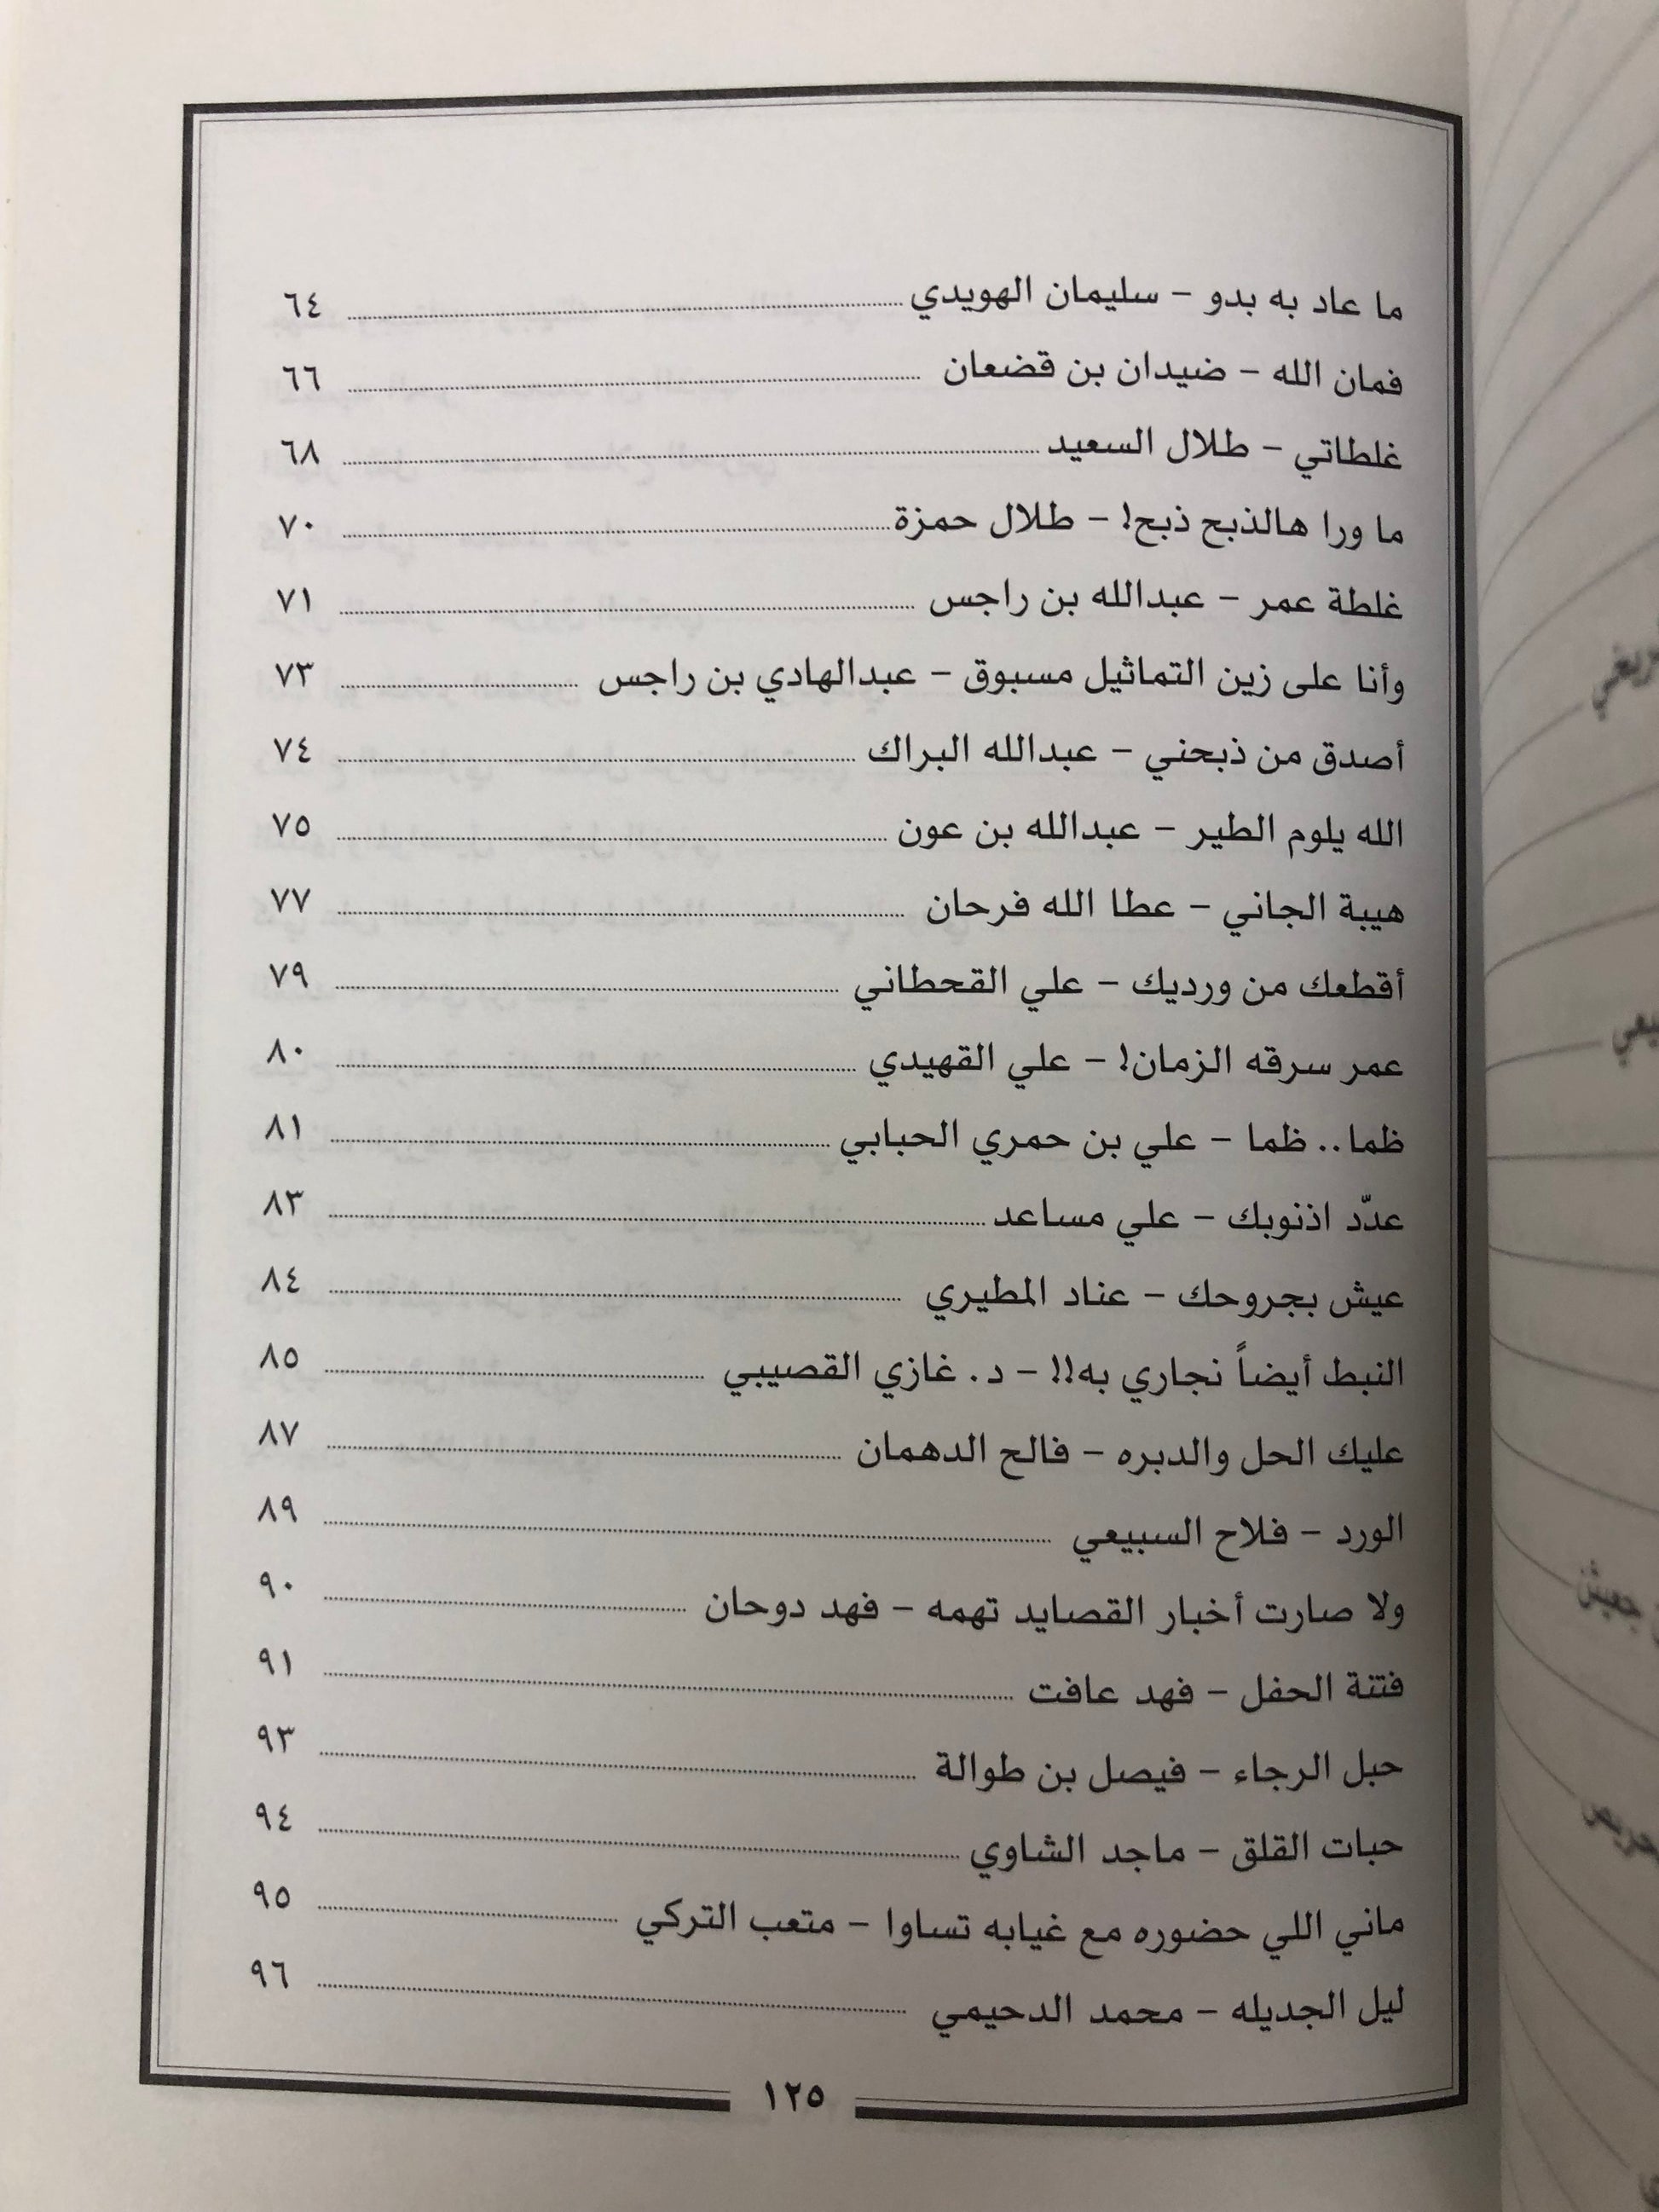 ما عاد به بدو – سليمان الهويدي ٦٤
فمان الله – ضيدان بن قضعان ٦٦
غلطاتي – طلال السعيد ٦٨
ما ورا هالذبح ذبح! – طلال حمزة ٧٠
غلطة عمر – عبدالله بن راجس ٧١
وأنا على زين التماثيل مسبوق – عبدالهادي بن راجس ٧٣
أصدق من ذبحني – عبدالله البراك ٧٤
الله يلوم الطير – عبدالله بن عون ٧٥
هيبة الجاني – عطا الله فرحان ٧٧
أقطعك من ورديك – علي القحطاني ٧٩
عمر سرقه الزمان! – علي القهيدي ٨٠
ظما.. ظما – علي بن حمري الحبابي ٨١
عدّد اذنوبك – علي مساعد ٨٣
عيش بجروحك – عناد المطيري ٨٤
النبط أيضاً نجاري به!! – د. غازي القصيبي ٨٥
عليك الحل والدبره – فالح الدهمان ٨٧
الورد – فلاح السبيعي ٨٩
ولا صارت أخبار القصايد تهمه – فهد دوحان ٩٠
فتنة الحفل – فهد عافت ٩١
حبل الرجاء – فيصل بن طوالة ٩٣
حبات القلق – ماجد الشاوي ٩٤
ماني اللي حضوره مع غيابه تساوا – متعب التركي ٩٥
ليل الجديله – محمد الدحيمي ٩٦
١٢٥